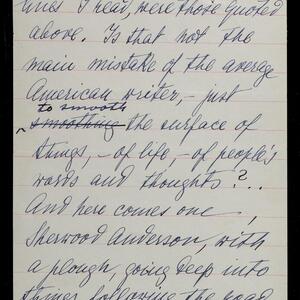 lines I read, were those quoted
above. Is that not the
main mistake of the average
American writer, – just
to smooth
smoothing the surface of
things, – of life, – of people's
words and thoughts?..
And here comes one – ,
Sherwood Anderson, with
a plough, going deep into
things following the road